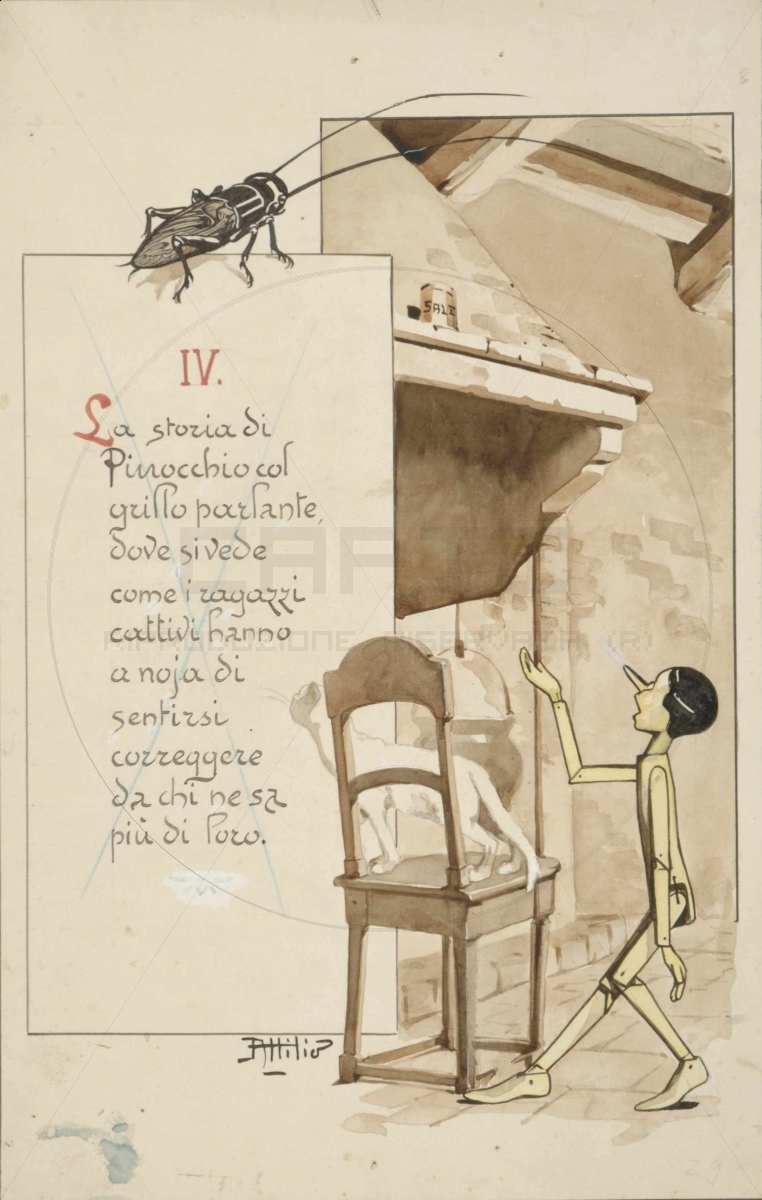 SALE
IV.
La storia di
Pinocchio col
grillo parlante,
dove si vede
come i ragazzi
cattivi hanno
a noja di
sentirsi
correggere
da chi ne sa
più di loro.
Attilio
RIPRODUZIONE RISERVATA (R)
29